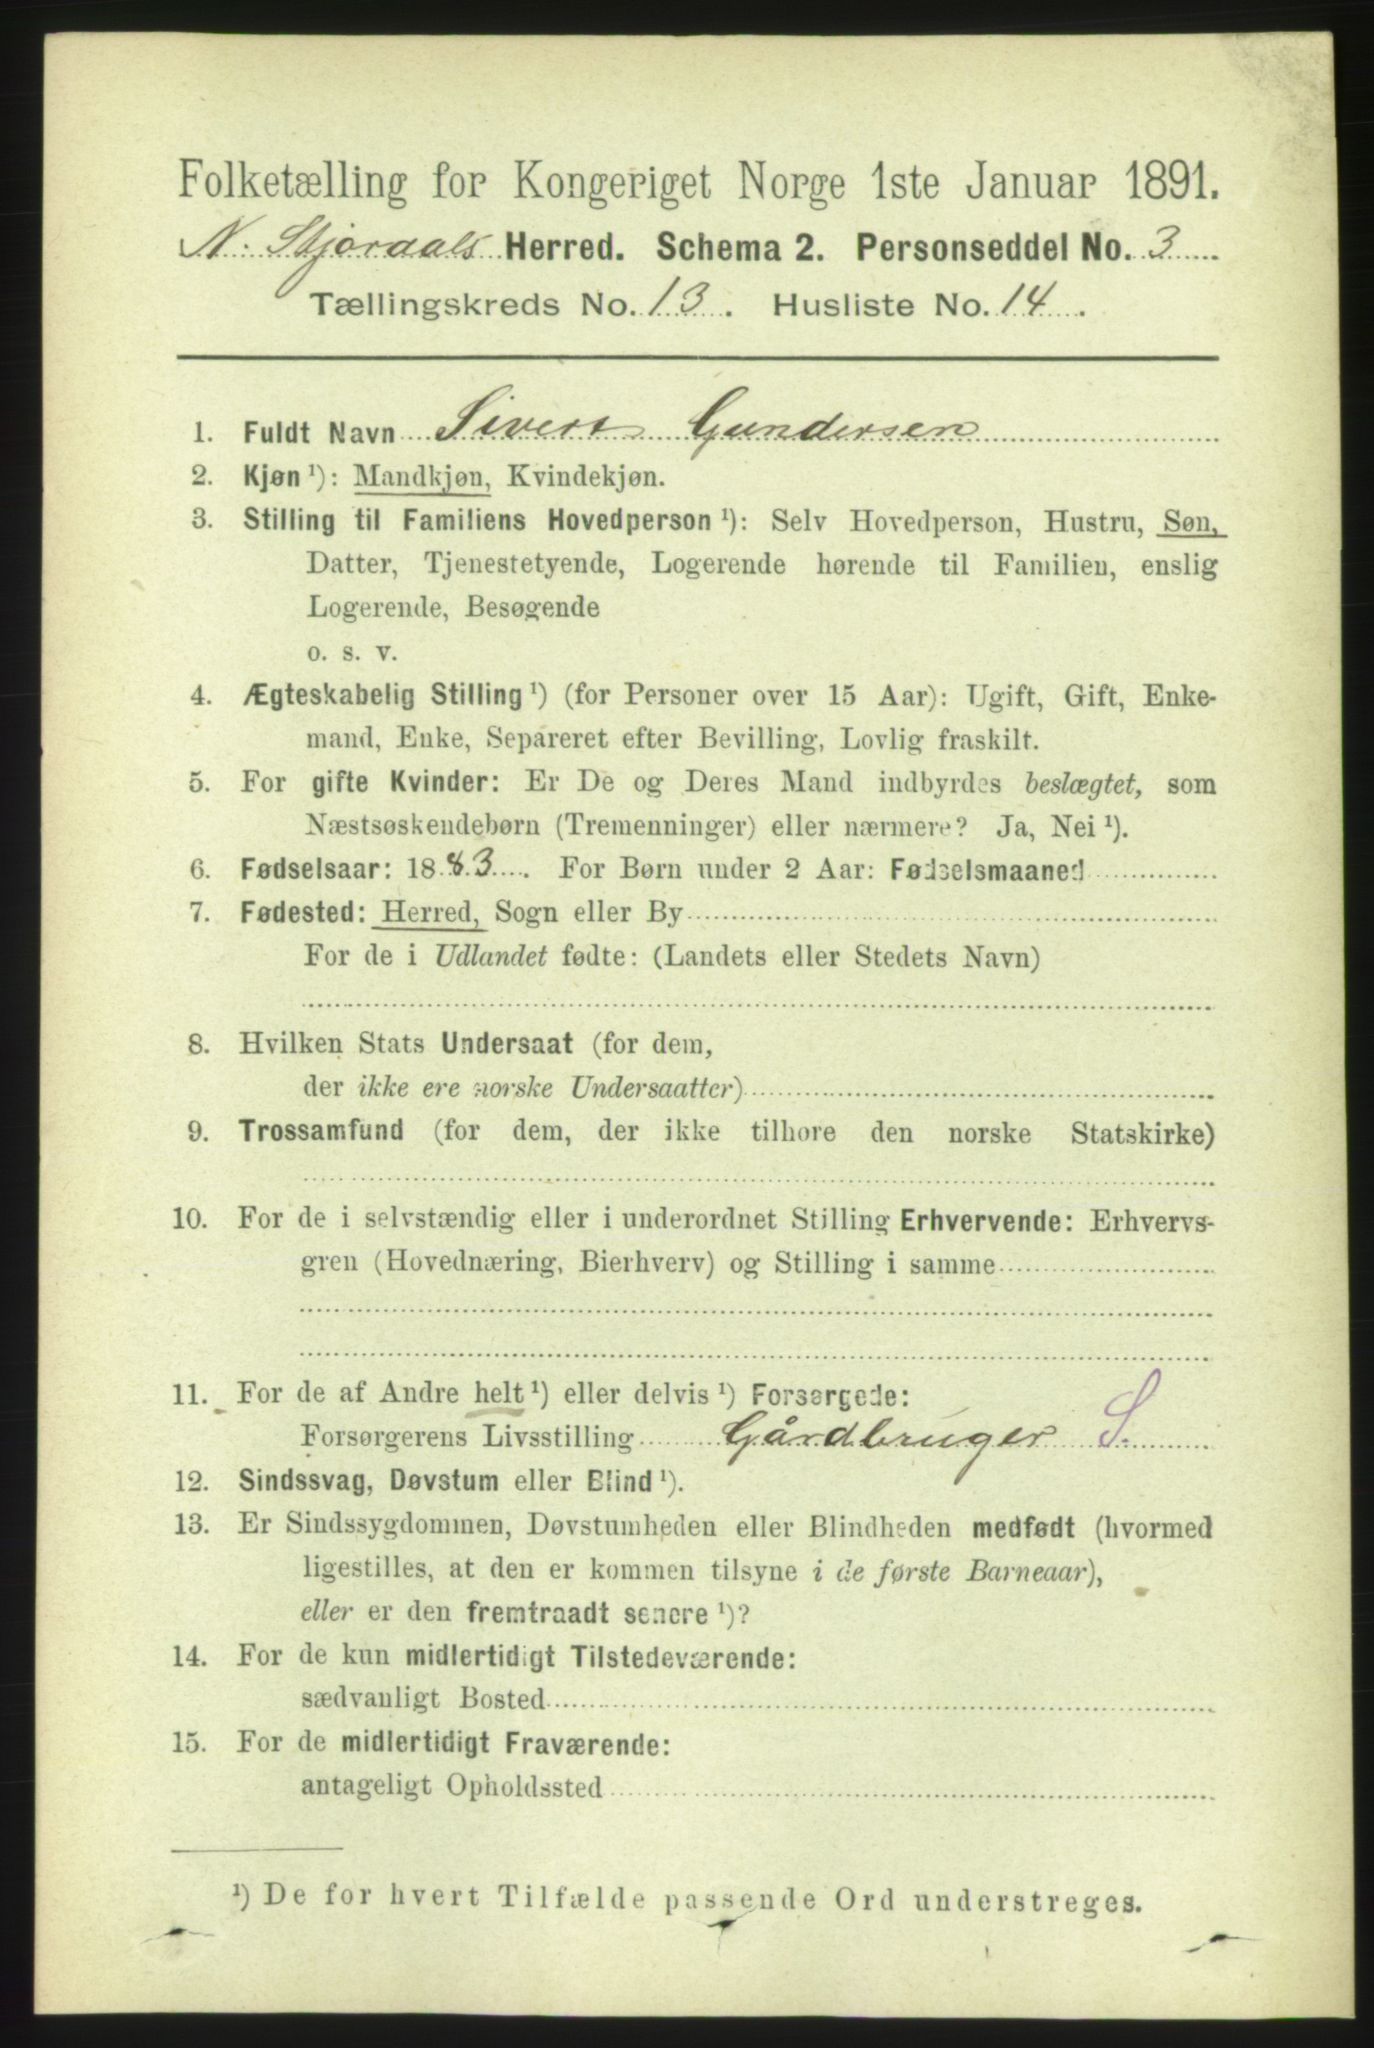 Folketælling for Kongeriget Norge 1ste Januar 1891.
N. Stjørdals Herred. Schema 2. Personseddel No. 3
Tællingskreds No. 13. Husliste No. 14.
1. Fuldt Navn Sivert Gundersen
2. Kjøn ¹): Mandkjøn, Kvindekjøn.
3. Stilling til Familiens Hovedperson ¹): Selv Hovedperson, Hustru, Søn,
Datter, Tjenestetyende, Logerende hørende til Familien, enslig
Logerende, Besøgende
o. s. v.
4. Ægteskabelig Stilling ¹) (for Personer over 15 Aar): Ugift, Gift, Enke-
mand, Enke, Separeret efter Bevilling, Lovlig fraskilt.
5. For gifte Kvinder: Er De og Deres Mand indbyrdes beslægtet, som
Næstsøskendebørn (Tremenninger) eller nærmere? Ja, Nei ¹).
6. Fødselsaar: 1883. For Børn under 2 Aar: Fødselsmaaned
7. Fødested: Herred, Sogn eller By
For de i Udlandet fødte: (Landets eller Stedets Navn)
8. Hvilken Stats Undersaat (for dem,
der ikke ere norske Undersaatter)
9. Trossamfund (for dem, der ikke tilhøre den norske Statskirke)
10. For de i selvstændig eller i underordnet Stilling Erhvervende: Erhvervs-
gren (Hovednæring, Bierhverv) og Stilling i samme
11. For de af Andre helt ¹) eller delvis ¹) Forsørgede:
Forsørgerens Livsstilling Gårdbruger S.
12. Sindssvag, Døvstum eller Blind ¹).
13. Er Sindssygdommen, Døvstumheden eller Blindheden medfødt (hvormed
ligestilles, at den er kommen tilsyne i de første Barneaar),
eller er den fremtraadt senere ¹)?
14. For de kun midlertidigt Tilstedeværende:
sædvanligt Bosted
15. For de midlertidigt Fraværende:
antageligt Opholdssted
¹) De for hvert Tilfælde passende Ord understreges.